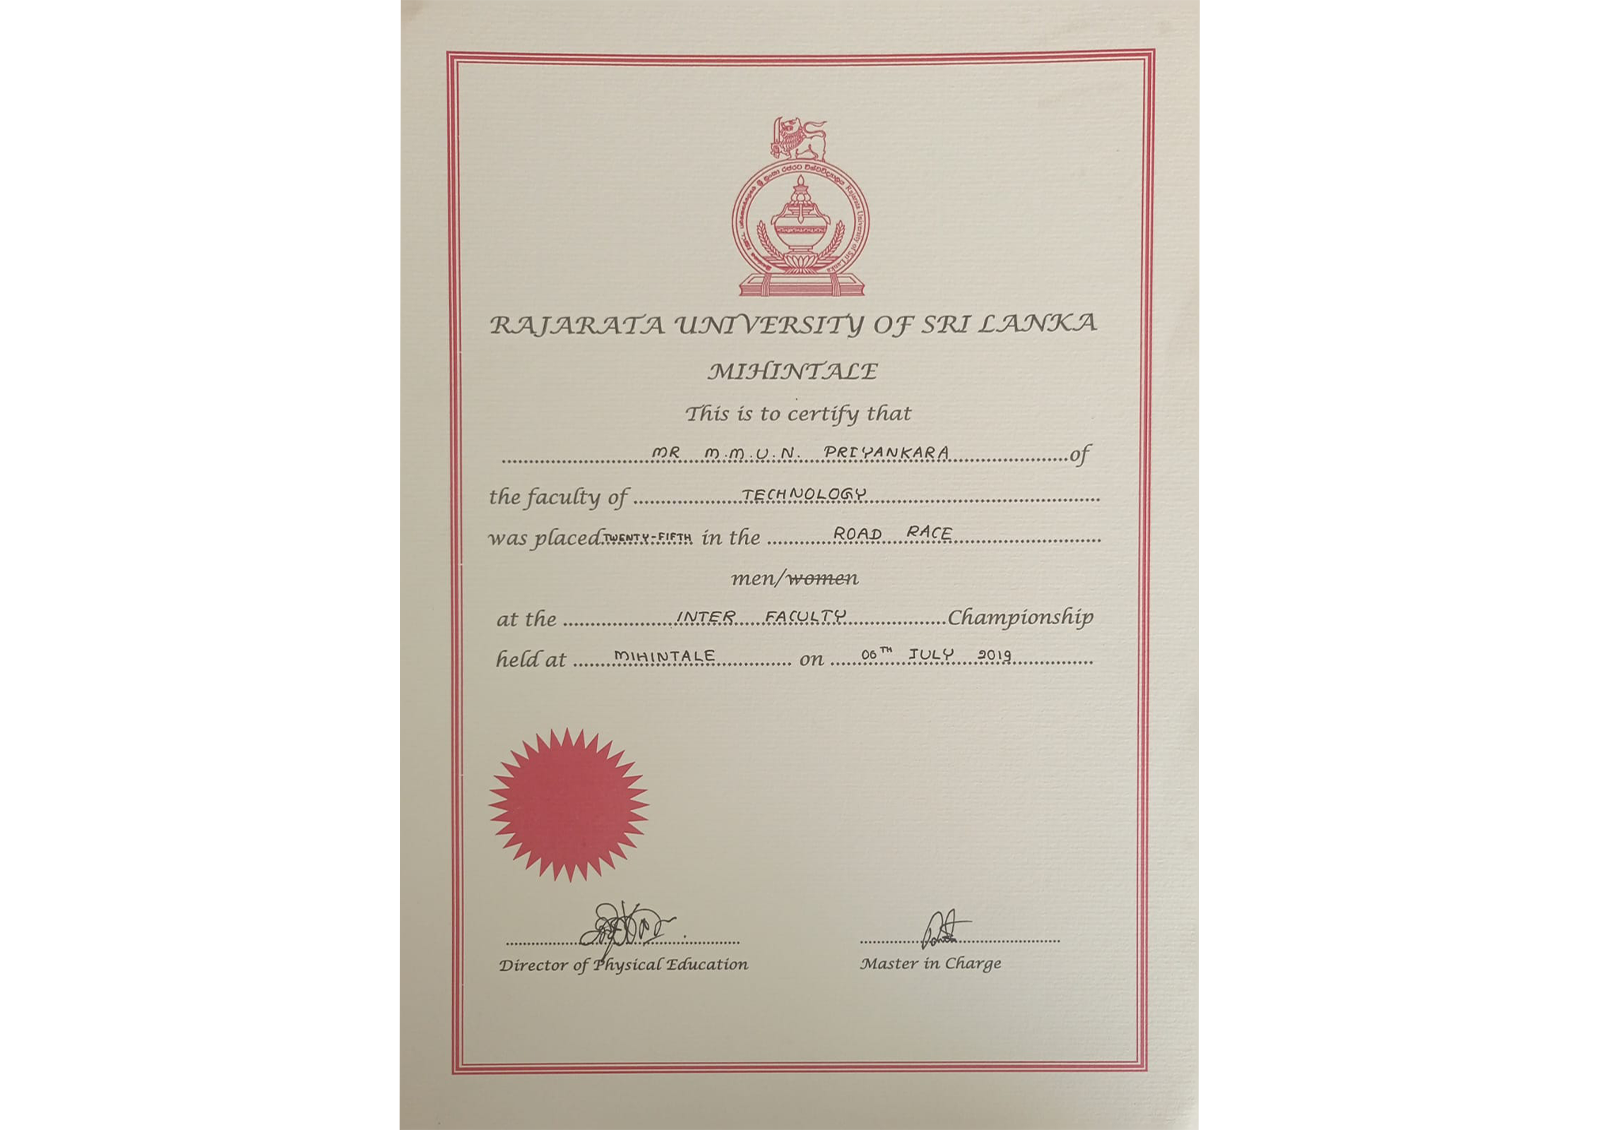 Rajarata University of Sri Lanka
RAJARATA UNIVERSITY OF SRI LANKA
MIHINTALE
This is to certify that
MR M.M.U.N. PRIYANKARA of
the faculty of TECHNOLOGY
was placed TWENTY-FIFTH in the ROAD RACE
men/women
at the INTER FACULTY Championship
held at MIHINTALE on 06TH JULY 2019
Director of Physical Education Master in Charge